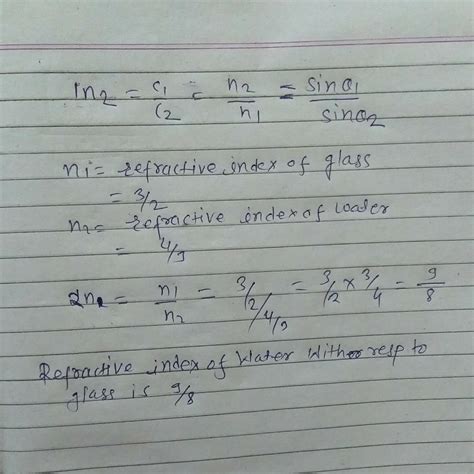 1n2 = c1/c2 = n2/n1 = sinθ1/sinθ2
n1 = refractive index of glass
= 3/2
n2 = refractive index of water
= 4/3
2n1 = n1/n2 = 3/2/4/3 = 3/2 × 3/4 = 9/8
Refractive index of water with resp to
glass is 9/8